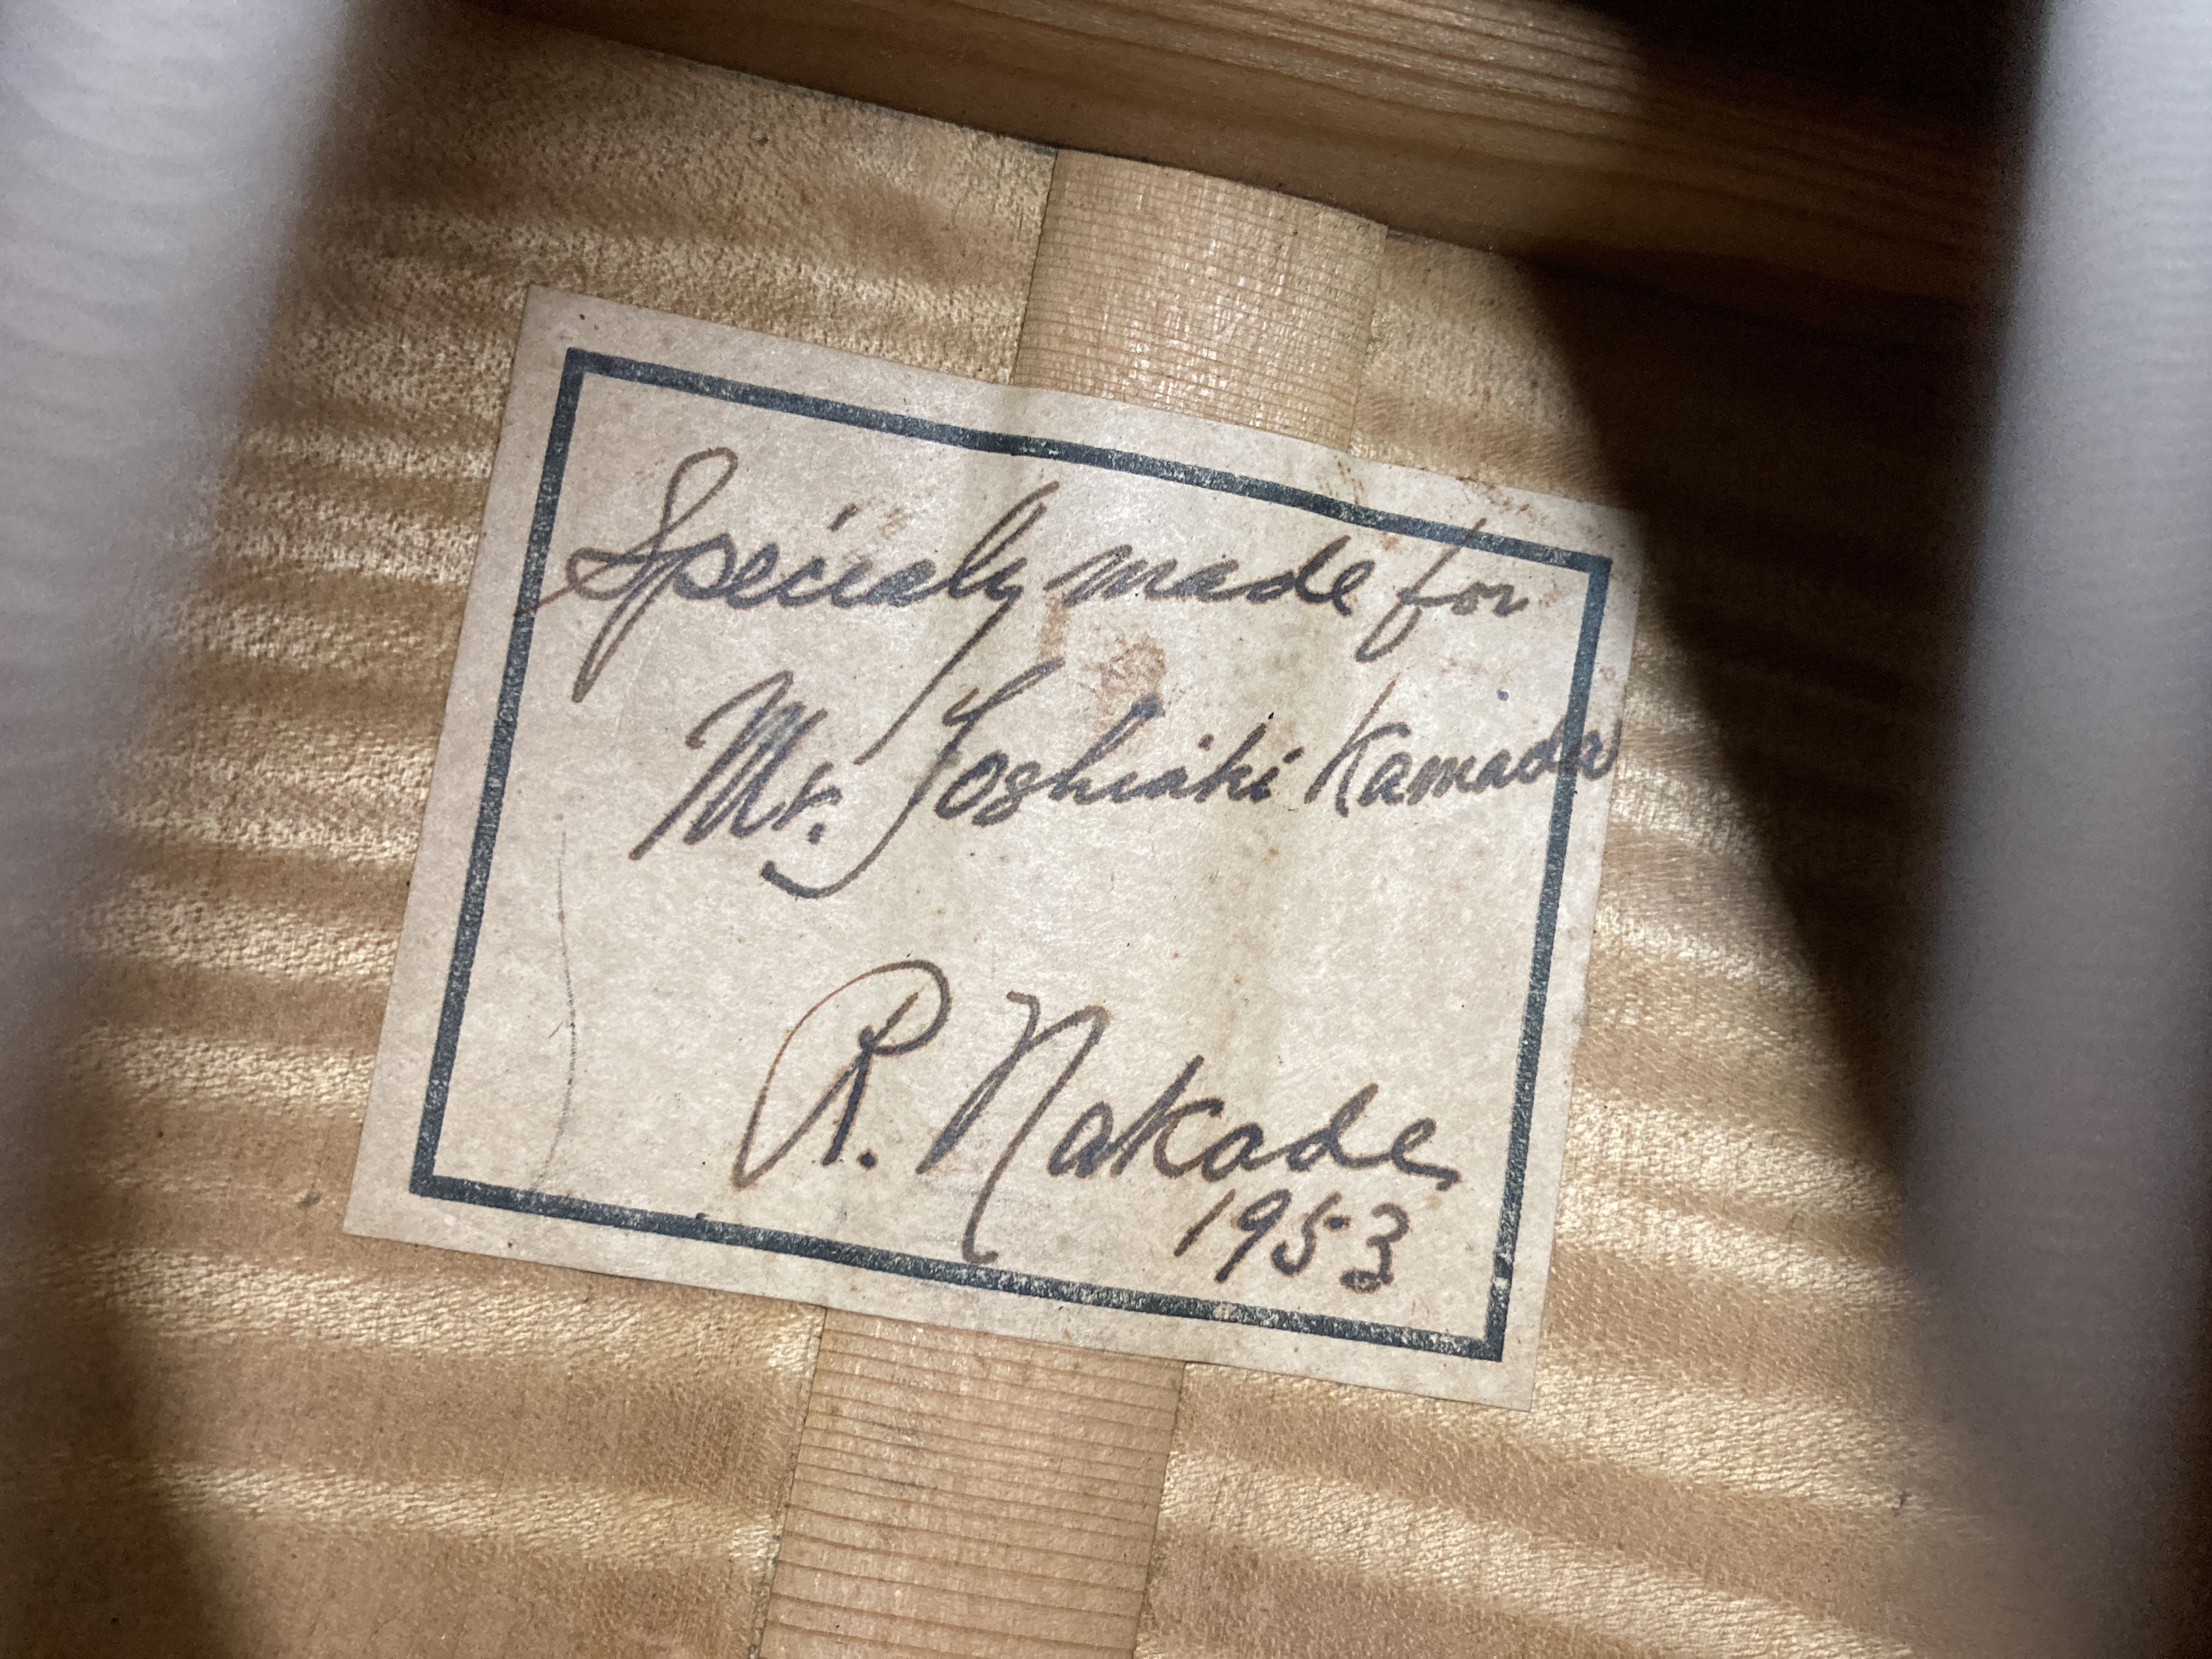 Specialy made for
Mr. Toshiaki Kamada
R. Nakade
1953